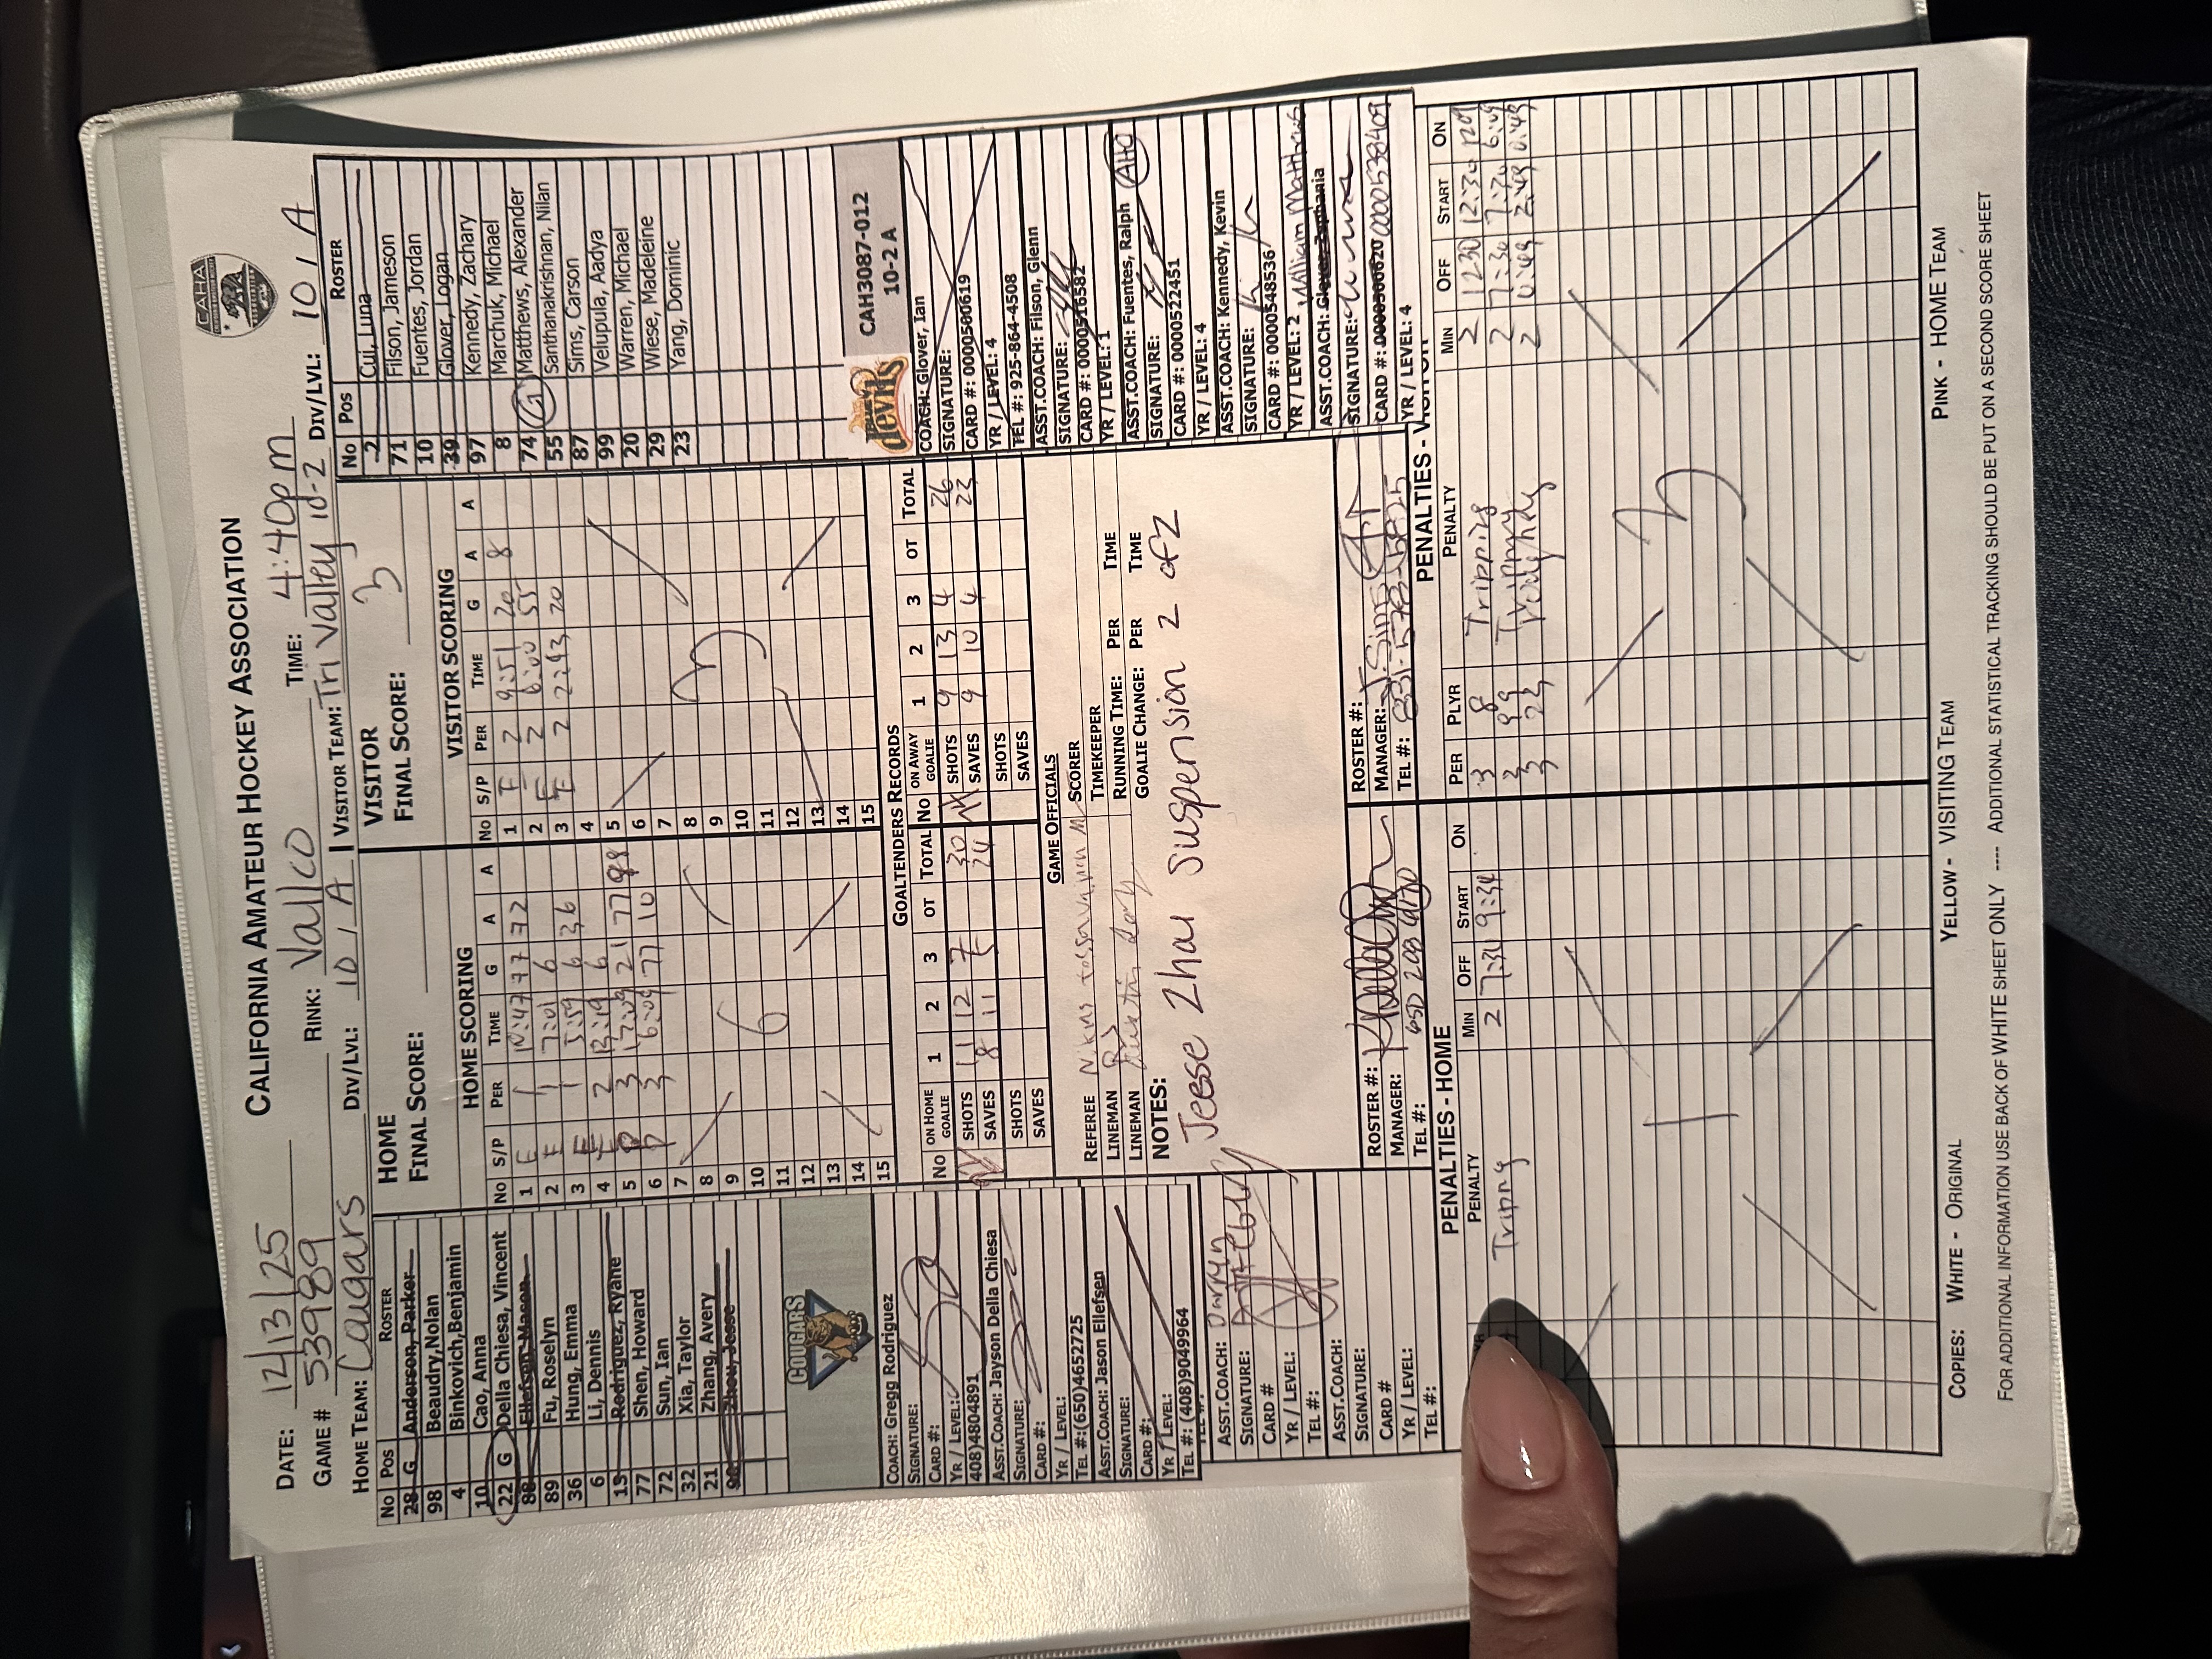 CALIFORNIA AMATEUR HOCKEY ASSOCIATION
CAHA
DATE: 12/13/25 RINK: Vallco TIME: 4:40pm
GAME # 53989
HOME TEAM: Cougars DIV/LVL: 10 / A VISITOR TEAM: Tri Valley 10-2 DIV/LVL: 10 / A
No Pos ROSTER
28 G Anderson, Parker
98 Beaudry, Nolan
4 Binkovich, Benjamin
10 Cao, Anna
22 G Della Chiesa, Vincent
88 Ellefsen, Mason
89 Fu, Roselyn
36 Hung, Emma
6 Li, Dennis
13 Rodriguez, Ryane
77 Shen, Howard
72 Sun, Ian
32 Xia, Taylor
21 Zhang, Avery
Zhou, Jesse
COUGARS
COACH: Gregg Rodriguez
SIGNATURE:
CARD #:
YR / LEVEL:
408)4804891
ASST.COACH: Jayson Della Chiesa
SIGNATURE:
CARD #:
YR / LEVEL:
TEL #:(650)4652725
ASST.COACH: Jason Ellefsen
SIGNATURE:
CARD #:
YR / LEVEL:
TEL #: (408)9049964
ASST.COACH: Darryn
SIGNATURE:
CARD #
YR / LEVEL:
TEL #:
ASST.COACH:
SIGNATURE:
CARD #
YR / LEVEL:
TEL #:
HOME
FINAL SCORE:
VISITOR
FINAL SCORE: 3
HOME SCORING
No S/P PER TIME G A A
1 E 1 10:47 77 72
2 E 1 7:01 6
3 E 1 5:59 6 36
4 E 2 6
5 3 21 77 98
6 P 3 6:09 77 10
7
8
9
10
11
12
13
14
15
6
VISITOR SCORING
No S/P PER TIME G A A
1 E 2 9:51 20 8
2 E 2 6:00 55
3 E 2 2:43 20
4
5
6
7
8
9
10
11
12
13
14
15
3
GOALTENDERS RECORDS
No ON HOME GOALIE 1 2 3 OT TOTAL No ON AWAY GOALIE 1 2 3 OT TOTAL
SHOTS 11 12 7 30 SHOTS 9 13 4 26
SAVES 8 11 24 SAVES 9 10 4 23
SHOTS SHOTS
SAVES SAVES
GAME OFFICIALS
REFEREE SCORER
LINEMAN TIMEKEEPER
LINEMAN RUNNING TIME: PER TIME
GOALIE CHANGE: PER TIME
NOTES:
Jesse Zhai suspension 2 of 2
ROSTER #:
MANAGER:
TEL #: 650
ROSTER #:
MANAGER: J. Sims
TEL #:
No Pos ROSTER
2 Cui, Luna
71 Filson, Jameson
10 Fuentes, Jordan
39 Glover, Logan
97 Kennedy, Zachary
8 Marchuk, Michael
74 G Matthews, Alexander
55 Santhanakrishnan, Nilan
87 Sims, Carson
99 Velupula, Aadya
20 Warren, Michael
29 Wiese, Madeleine
23 Yang, Dominic
devils
CAH3087-012
10-2 A
COACH: Glover, Ian
SIGNATURE:
CARD #: 0000500619
YR / LEVEL: 4
TEL #: 925-864-4508
ASST.COACH: Filson, Glenn
SIGNATURE:
CARD #: 0000516582
YR / LEVEL: 1
ASST.COACH: Fuentes, Ralph AHC
SIGNATURE:
CARD #: 0000522451
YR / LEVEL: 4
ASST.COACH: Kennedy, Kevin
SIGNATURE:
CARD #: 0000548536
YR / LEVEL: 2 William Matthews
ASST.COACH: Glover, Zephania
SIGNATURE:
CARD #: 0000500620 0000538409
YR / LEVEL: 4
PENALTIES - HOME
PENALTY MIN OFF START ON
Tripping 2 7:34 9:34
1
PENALTIES -
PER PLYR PENALTY MIN OFF START ON
3 8 Tripping 2 12:30 12:30
3 99 Tripping 2 7:30 7:30 6:49
3 2 0:49 2:49 0:49
3
COPIES: WHITE - ORIGINAL YELLOW - VISITING TEAM PINK - HOME TEAM
FOR ADDITIONAL INFORMATION USE BACK OF WHITE SHEET ONLY ---- ADDITIONAL STATISTICAL TRACKING SHOULD BE PUT ON A SECOND SCORE SHEET